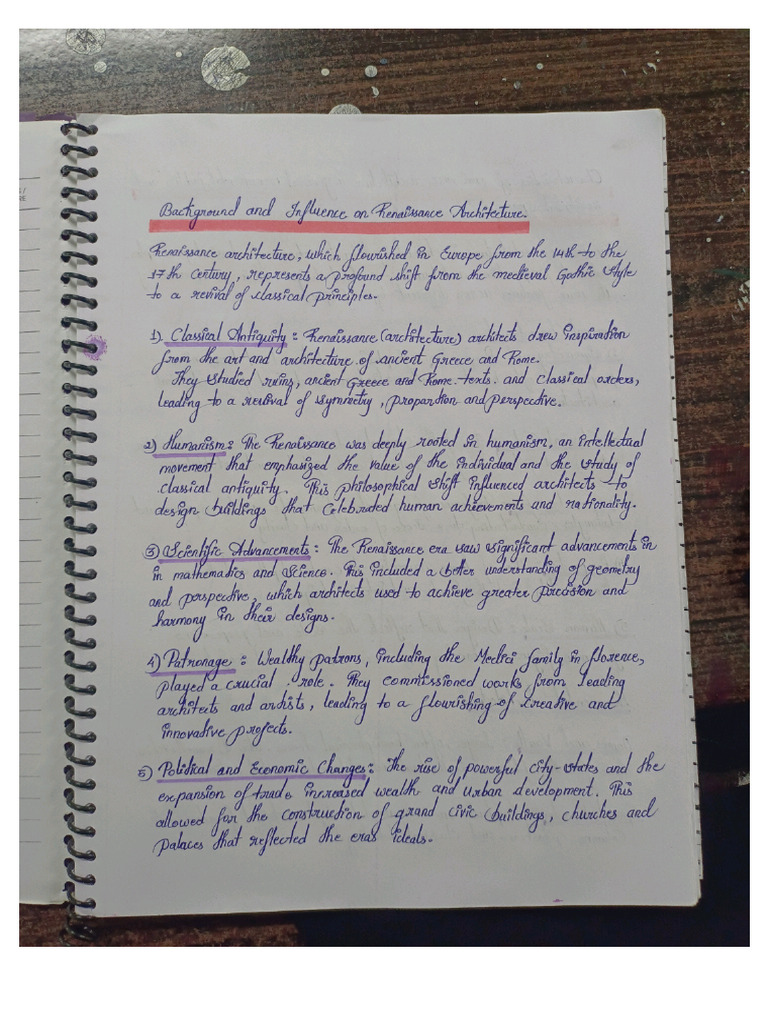 Background and Influence on Renaissance Architecture.
Renaissance architecture, which flourished in Europe from the 14th to the
17th century, represents a profound shift from the medieval Gothic style
to a revival of classical principles.
1) Classical Antiquity: Renaissance (architecture) architects drew inspiration
from the art and architecture of ancient Greece and Rome.
They studied ruins, ancient Greece and Rome texts. and classical orders,
leading to a revival of symmetry, proportion and perspective.
2) Humanism: The Renaissance was deeply rooted in humanism, an intellectual
movement that emphasized the value of the individual and the study of
classical antiquity. This philosophical shift influenced architects to
design buildings that celebrated human achievements and rationality.
3) Scientific Advancements: The Renaissance era saw significant advancements in
in mathematics and science. This included a better understanding of geometry
and perspective, which architects used to achieve greater precision and
harmony in their designs.
4) Patronage: Wealthy patrons, including the Medici family in florence,
played a crucial role. They commissioned works from leading
architects and artists, leading to a flourishing of creative and
innovative projects.
5) Political and Economic Changes: The rise of powerful city-states and the
expansion of trade increased wealth and urban development. This
allowed for the construction of grand civic buildings, churches and
palaces that reflected the eras ideals.